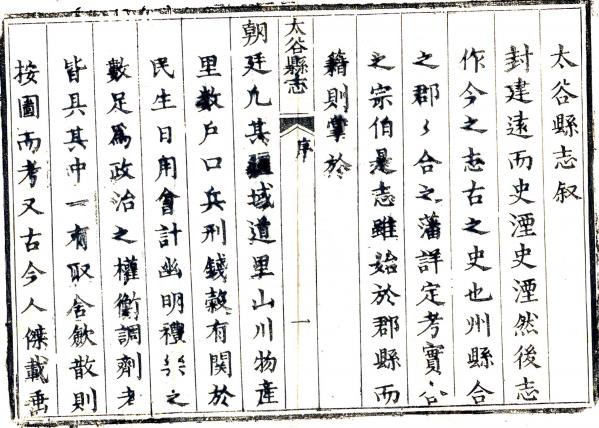 太谷縣志叙
封建遠而史湮史湮然後志
作今之志古之史也州縣合
之郡郡合之藩詳定考實以
之宗伯是志雖始於郡縣而
籍則掌於
太谷縣志
序
一
朝廷凡其疆域道里山川物產
里數戶口兵刑錢榖有關於
民生日用會計幽明禮之
數足爲政治之權衡調劑者
皆具其中一有取舍斂散則
按圖而考又古今人傑載